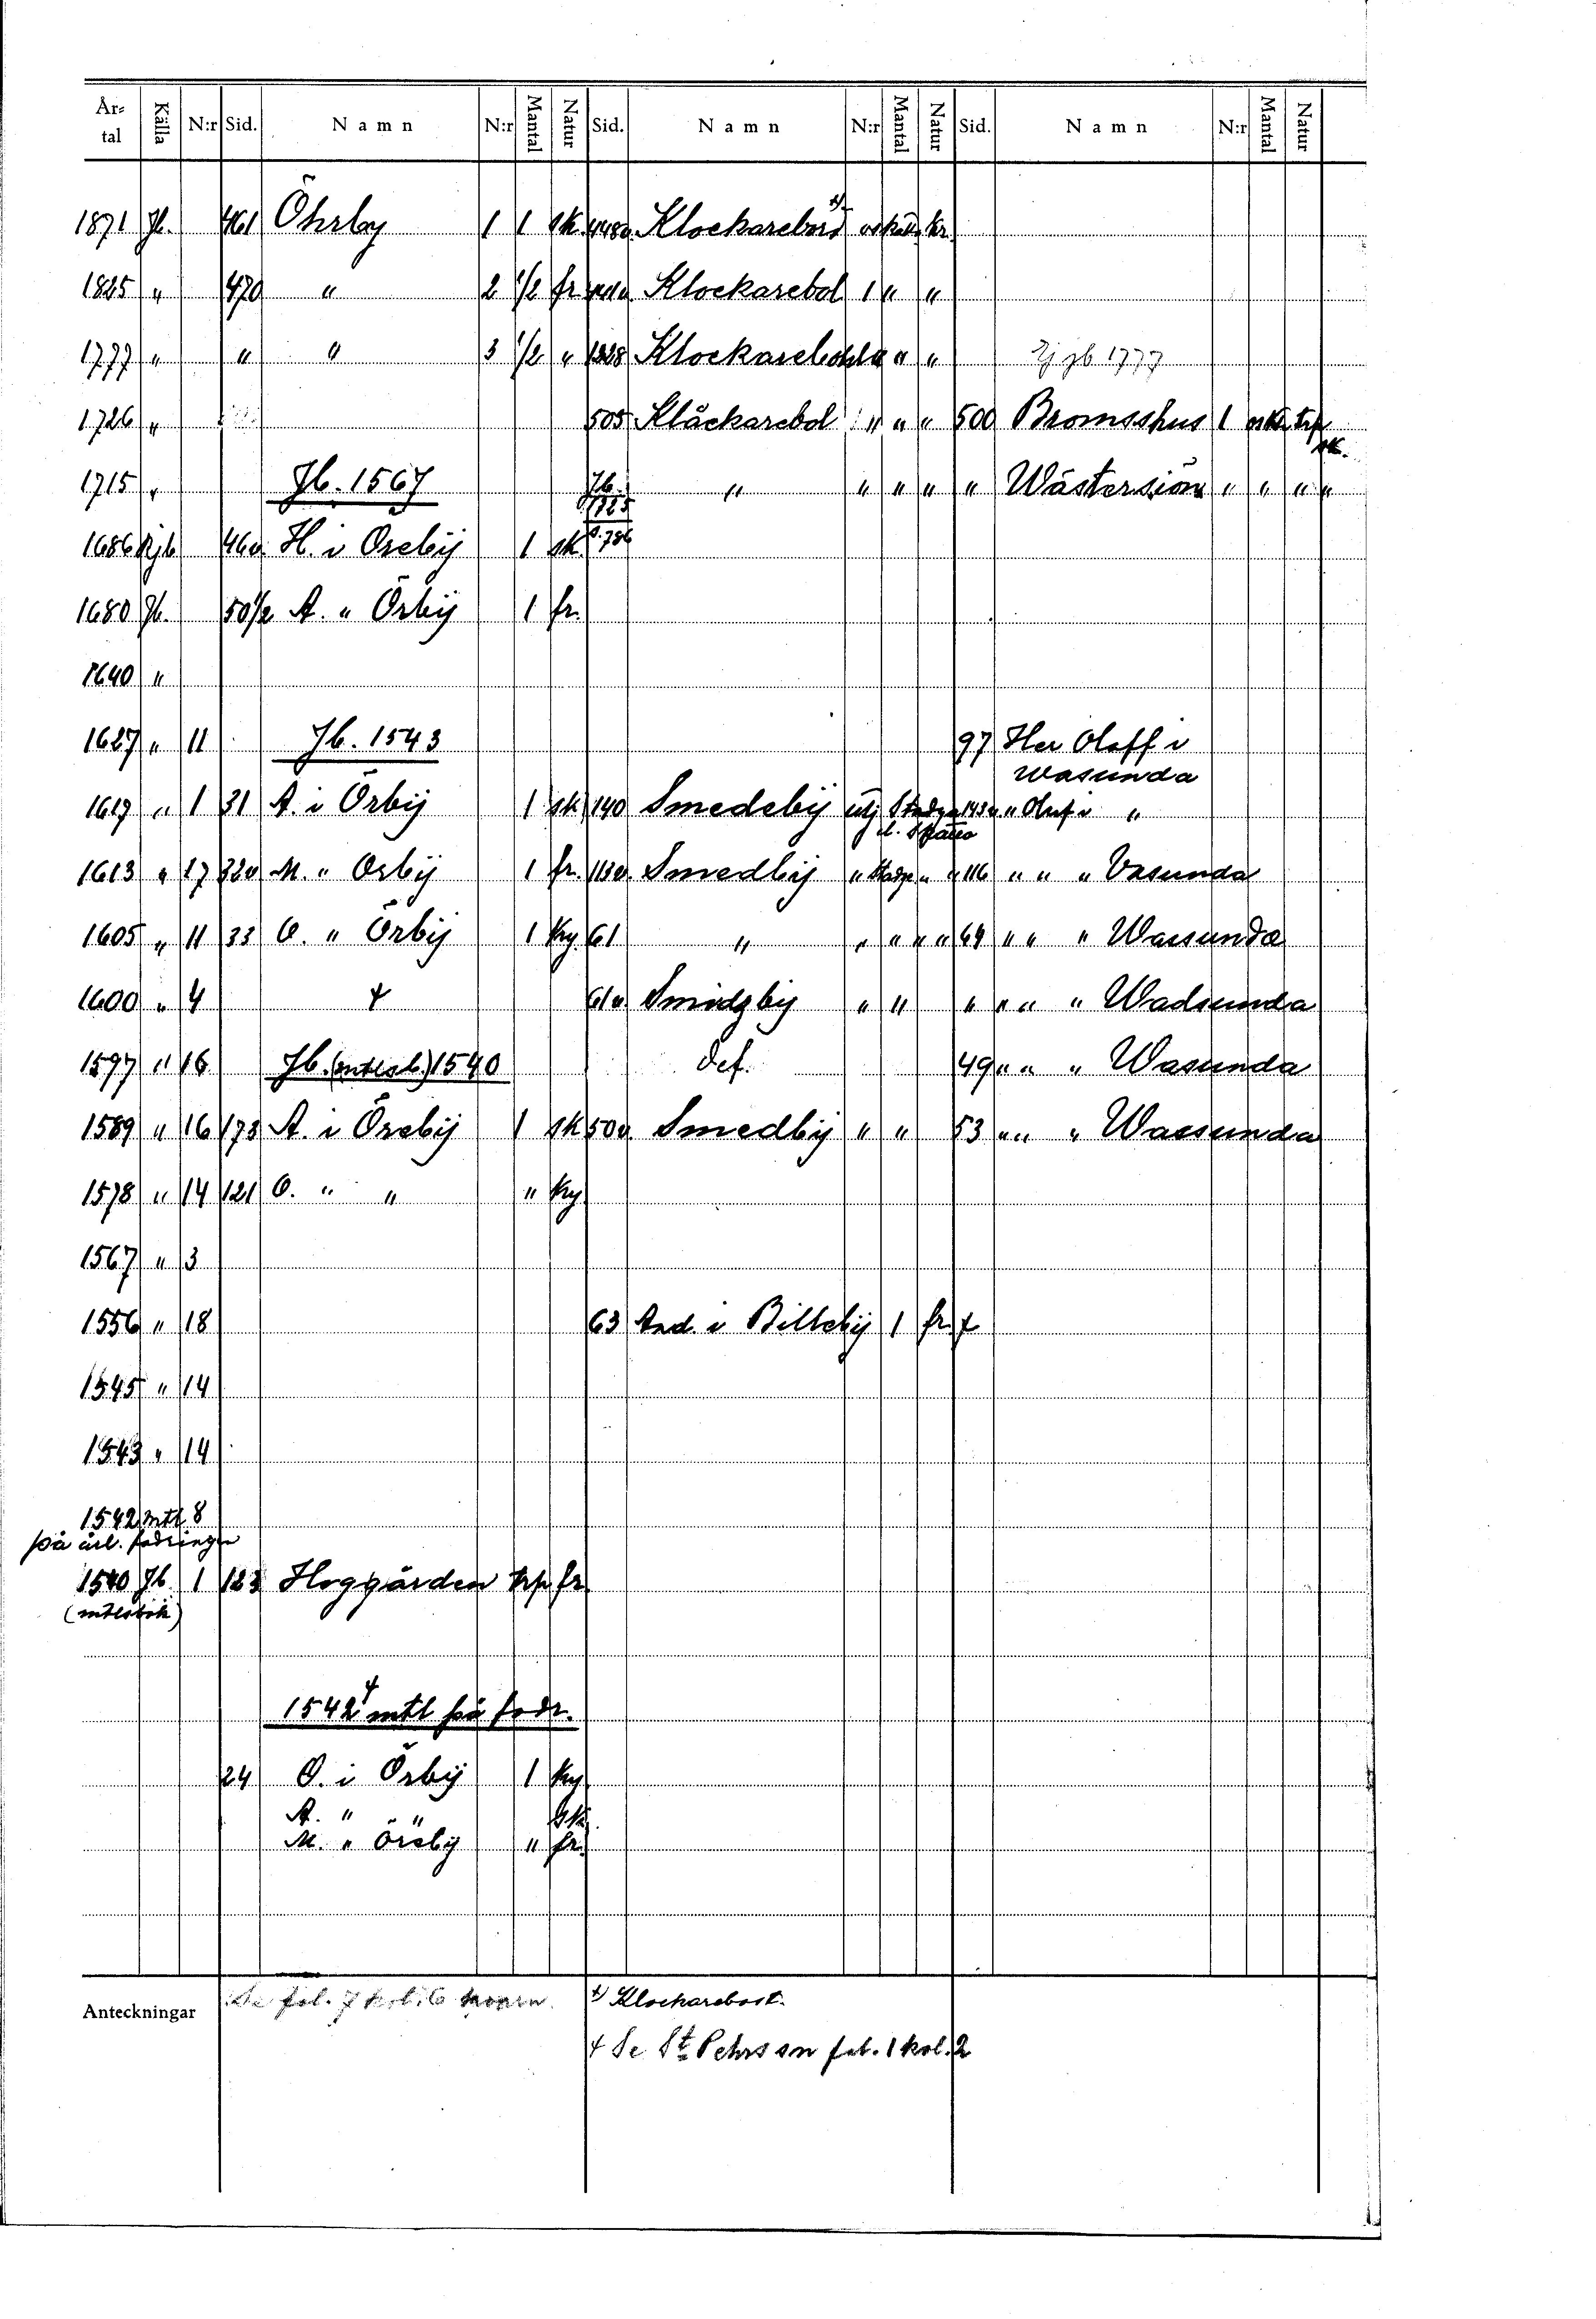 År-tal Källa N:r Sid. Namn N:r Mantal Natur Sid. Namn N:r Mantal Natur Sid. Namn N:r Mantal Natur
1871 Jb. 461 Öhrby 1 1 sk Klockarebord kr.
1825 " 470 " 2 1/2 fr Klockarebol 1 " "
1777 " " " 3 1/2 " 1328 Klockarebohl " " " Ej jb 1777
1726 " 505 Klåckarebol " " " 500 Bromsshus 1 trp
sk.
1715 " Jb. 1567 Jb. 1725 " " " " " Wästersiön " " " "
1686 Rjb 46v H. i Oreby 1 sk s. 786
1680 Jb. 50 1/2 A. " Örbÿ 1 fr.
1640 "
1627 " 11 Jb. 1543 97 Her Olaff i
Wasunda
1617 " 1 31 A. i Örbÿ 1 sk 140 Smedebÿ utj 143v " Oluf i "
1613 " 17 32v M. " Orbÿ 1 fr. 113v. Smedbÿ " " " 116 " " " Vasunda
1605 " 11 33 O. " Örbÿ 1 ky. 61 " " " " " 64 " " " Wassunda
1600 " 4 + 61v Smidzbÿ " " " " " " Wadsunda
1597 " 16 Jb. (mtlsb.) 1540 def. 49 " " " Wasunda
1589 " 16 173 A. i Örebÿ 1 sk 50v. Smedbÿ " " 53 " " " Wassunda
1578 " 14 121 O. " " " ky
1567 " 3
1556 " 18 63 And. i Billebÿ 1 fr. +
1545 " 14
1543 " 14
1542 mtl 8
på årl. fodringen
1540 Jb. 1 123 Hoggården trp fr.
(mtlsbok)
1542 + mtl på fodr.
24 O. i Örbÿ 1 ky
A. " " sk.
M. " Örebÿ " fr.
Anteckningar Se fol. 7 kol. 6 x) Klockarebost.
+ Se S:t Pehrs sn fol. 1 kol. 2